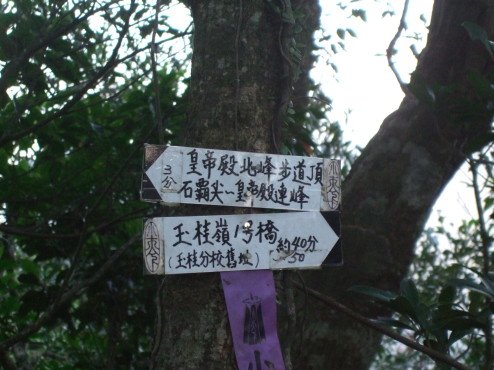 皇帝殿北峰步道頂
3分
石霸尖～皇帝殿連峰
玉桂嶺1号橋
約40分
~50
(玉桂分校舊址)